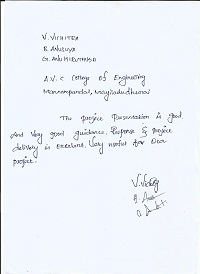 V. VICHITRA
B. ANUSUYA
G. ANU
A.V.C College of Engineering
Mannampandal, Mayiladudhurai
The project Presentation is good
And very good guidance. Response & project
delivery is excellent. Very useful for Our
project.